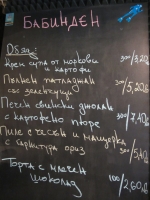 БАБИНДЕН
Обяд:
Крем супа от моркови
и картофи 300/3,20лв
Пълнен патладжан
със зеленчуци 300/5,20лв
Печен свински джолан
с картофено пюре 300/7,40лв
Пиле с чесън и мащерка
с гарнитура ориз 300/5,40лв
Торта с млечен
шоколад 100/2,60лв